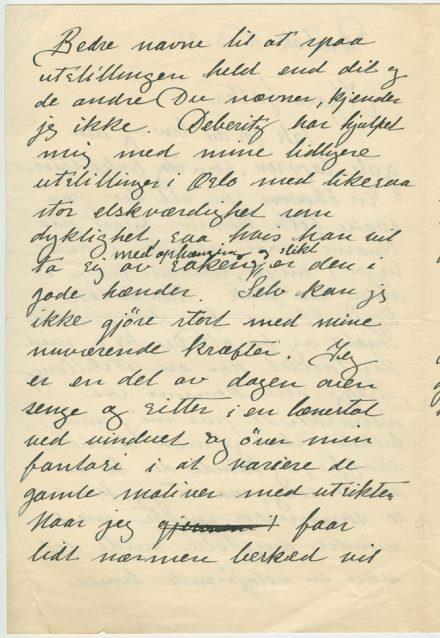 Bedre navne til at spaa
utstillingen held end dit og
de andre Du nævner, kjender
jeg ikke. Deberitz har hjulpet
mig med mine tidligere
utstillinger i Oslo med likesaa
stor elskværdighet som
dyktighet saa hvis han vil
med ophængning og slikt
ta sig av saken, er den i
gode hænder. Selv kan jeg
ikke gjöre stort med mine
nuværende kræfter. Jeg
er en del av dagen oven
senge og sitter i en lænestol
ved vinduet og över min
fantasi i at variere de
gamle motiver med utsikten
Naar jeg faar
lidt nærmere besked vil